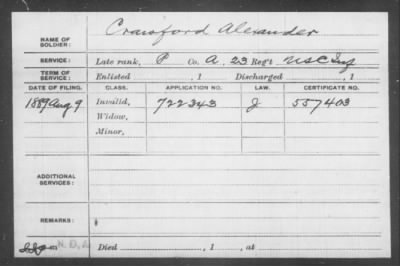 NAME OF SOLDIER: Crawford Alexander
SERVICE: Late rank, P Co. A, 23 Reg't U S C Inf
TERM OF SERVICE: Enlisted , 1 Discharged , 1
DATE OF FILING. CLASS. APPLICATION NO. LAW. CERTIFICATE NO.
1889 Aug 9 Invalid, 722343 J 557403
Widow,
Minor,
ADDITIONAL SERVICES:
REMARKS:
N. D. A.
Died , 1 , at